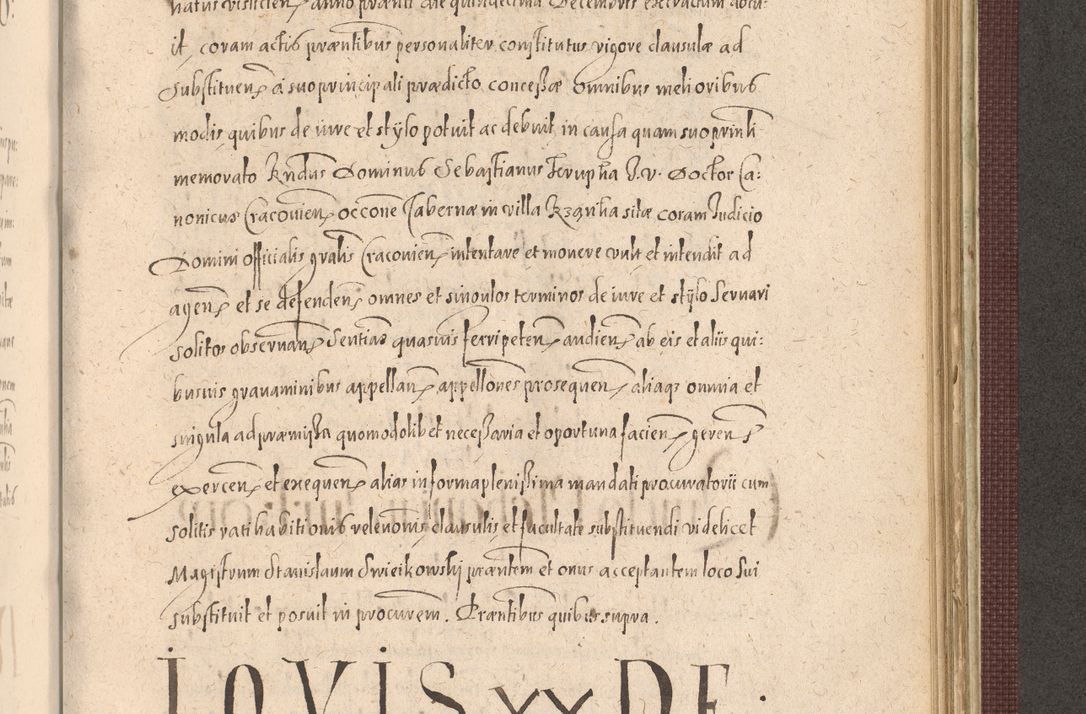 natus Visliciensis anno praenti die quindecima Decembris extractum docu:
it, coram actis praentibus personaliter constitutus vigore clausulae ad
substituen, a suo principali praedicto concessae omnibus melioribus
modis quibus de iure et stylo potuit ac debuit, in causa quam suo prinli
memorato Rndus Dominus Sebastianus Krupka J. V. Doctor Ca:
nonicus Cracovien, occone Tabernae in villa Rzanka sitae coram Judicio
Domini officialis gralis Cracovien, intentare et movere vult et intendit ad
agen, et se defenden, omnes et singulos terminos de iure et stylo servari
solitos observan, Sentias quasvis ferri peten, audien, ab eis et aliis qui:
busvis gravaminibus appellan, appellones prosequen, aliaqs omnia et
singula ad praemissa quomodolibet necessaria et oportuna facien, geren,
exercen, et exequen, alias in forma plenissima mandati procuratorii cum
solitis ratihabitionis relevonis clausulis et facultate substituendi videlicet
Magistrum Stanislaum Swieikowskij praentem et onus acceptantem loco sui
substituit et posuit in procurem. Praentibus quibus supra.
IOVIS XX DE: